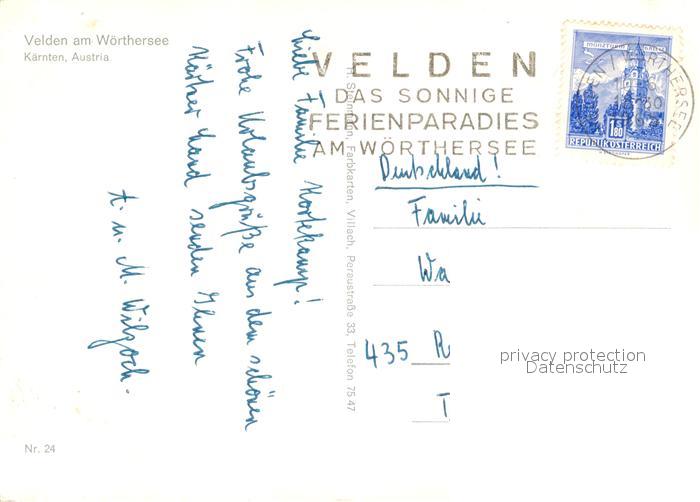 Velden am Wörthersee
Kärnten, Austria
VELDEN
DAS SONNIGE
FERIENPARADIES
AM WÖRTHERSEE
münzturm
1.80
REPUBLIK ÖSTERREICH
Liebe Familie Kortekamp!
Frohe Urlaubsgrüße aus dem schönen
Kärtner Land senden Ihnen
t. u. M. Wilgoch.
H. Steinmann, Farbkarten, Villach, Peraustraße 33, Telefon 75 47
Deutschland!
Familie
Wa
435 R
T
privacy protection
Datenschutz
Nr. 24